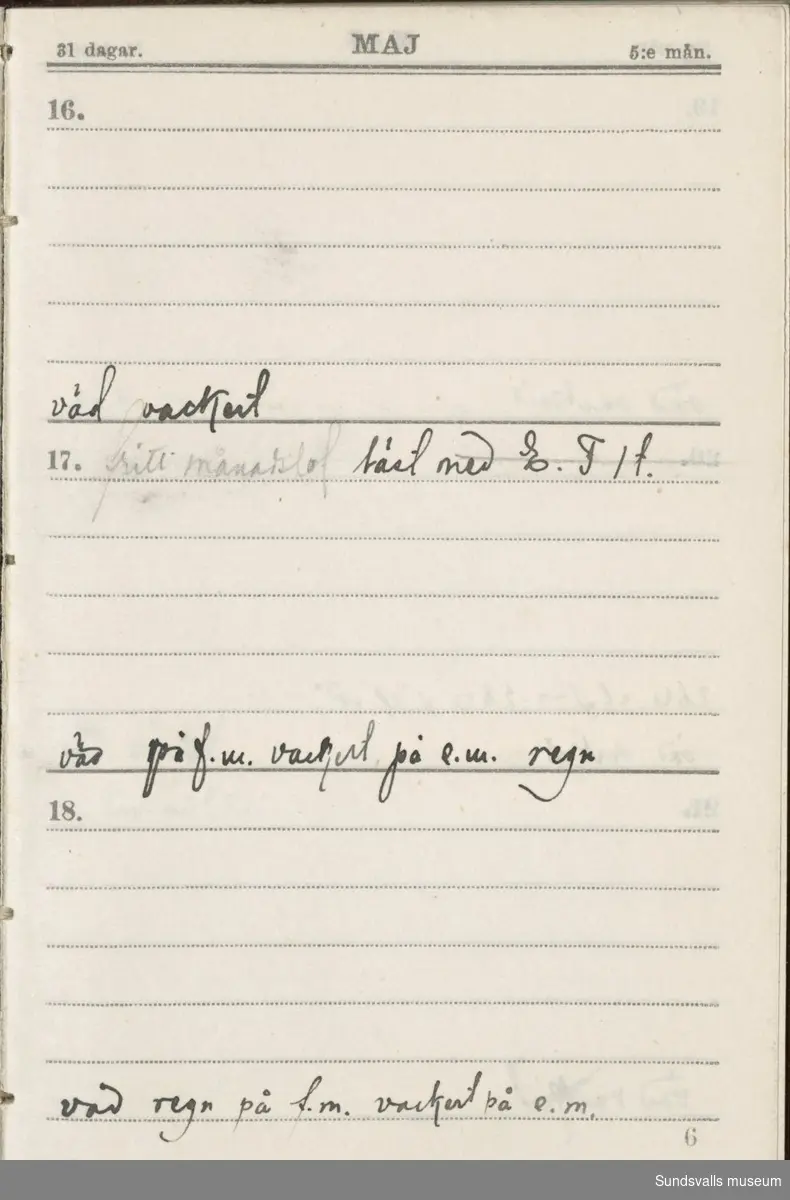 31 dagar. MAJ 5:e mån.
16.
väd vackert
17. fritt månadslof läst med E. T /f.
väd på f.m. vackert på e.m. regn
18.
väd regn på f.m. vackert på e.m.
6
Sundsvalls museum